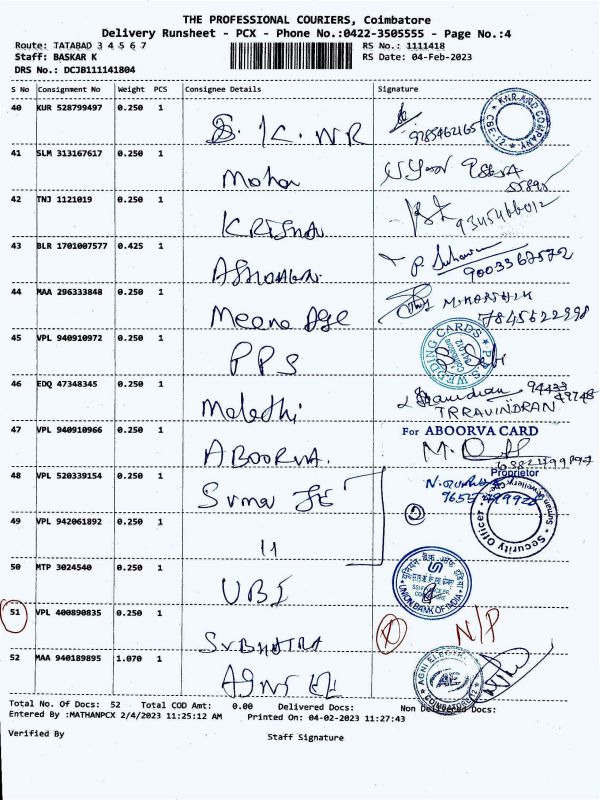 THE PROFESSIONAL COURIERS, Coimbatore
Delivery Runsheet - PCX - Phone No.:0422-3505555 - Page No.:4
Route: TATABAD 3 4 5 6 7 RS No.: 1111418
Staff: BASKAR K RS Date: 04-Feb-2023
DRS No.: DCJB111141804
S No Consignment No Weight PCS Consignee Details Signature
40 KUR 528799497 0.250 1
KNR AND COMPANY CBE-12
41 SLM 313167617 0.250 1
Mohan
42 TNJ 1121019 0.250 1
KRISHNA 9345466012
43 BLR 1701007577 0.425 1
44 MAA 296333848 0.250 1
Meena
45 VPL 940910972 0.250 1
PPS P.P.S. WEDDING CARDS
46 EDQ 47348345 0.250 1
Malathi
TRRAVINDRAN
47 VPL 940910966 0.250 1 For ABOORVA CARD
ABOORVA.
Proprietor
48 VPL 520339154 0.250 1
Suma
Security Officer
49 VPL 942061892 0.250 1
11
50 MTP 3024540 0.250 1
UBI UNION BANK OF INDIA
51 VPL 400890835 0.250 1
SUBHATRA N/P
52 MAA 940189895 1.070 1
AGNI AE COIMBATORE
Total No. Of Docs: 52 Total COD Amt: 0.00 Delivered Docs: Non Delivered Docs:
Entered By :MATHANPCX 2/4/2023 11:25:12 AM Printed On: 04-02-2023 11:27:43
Verified By Staff Signature